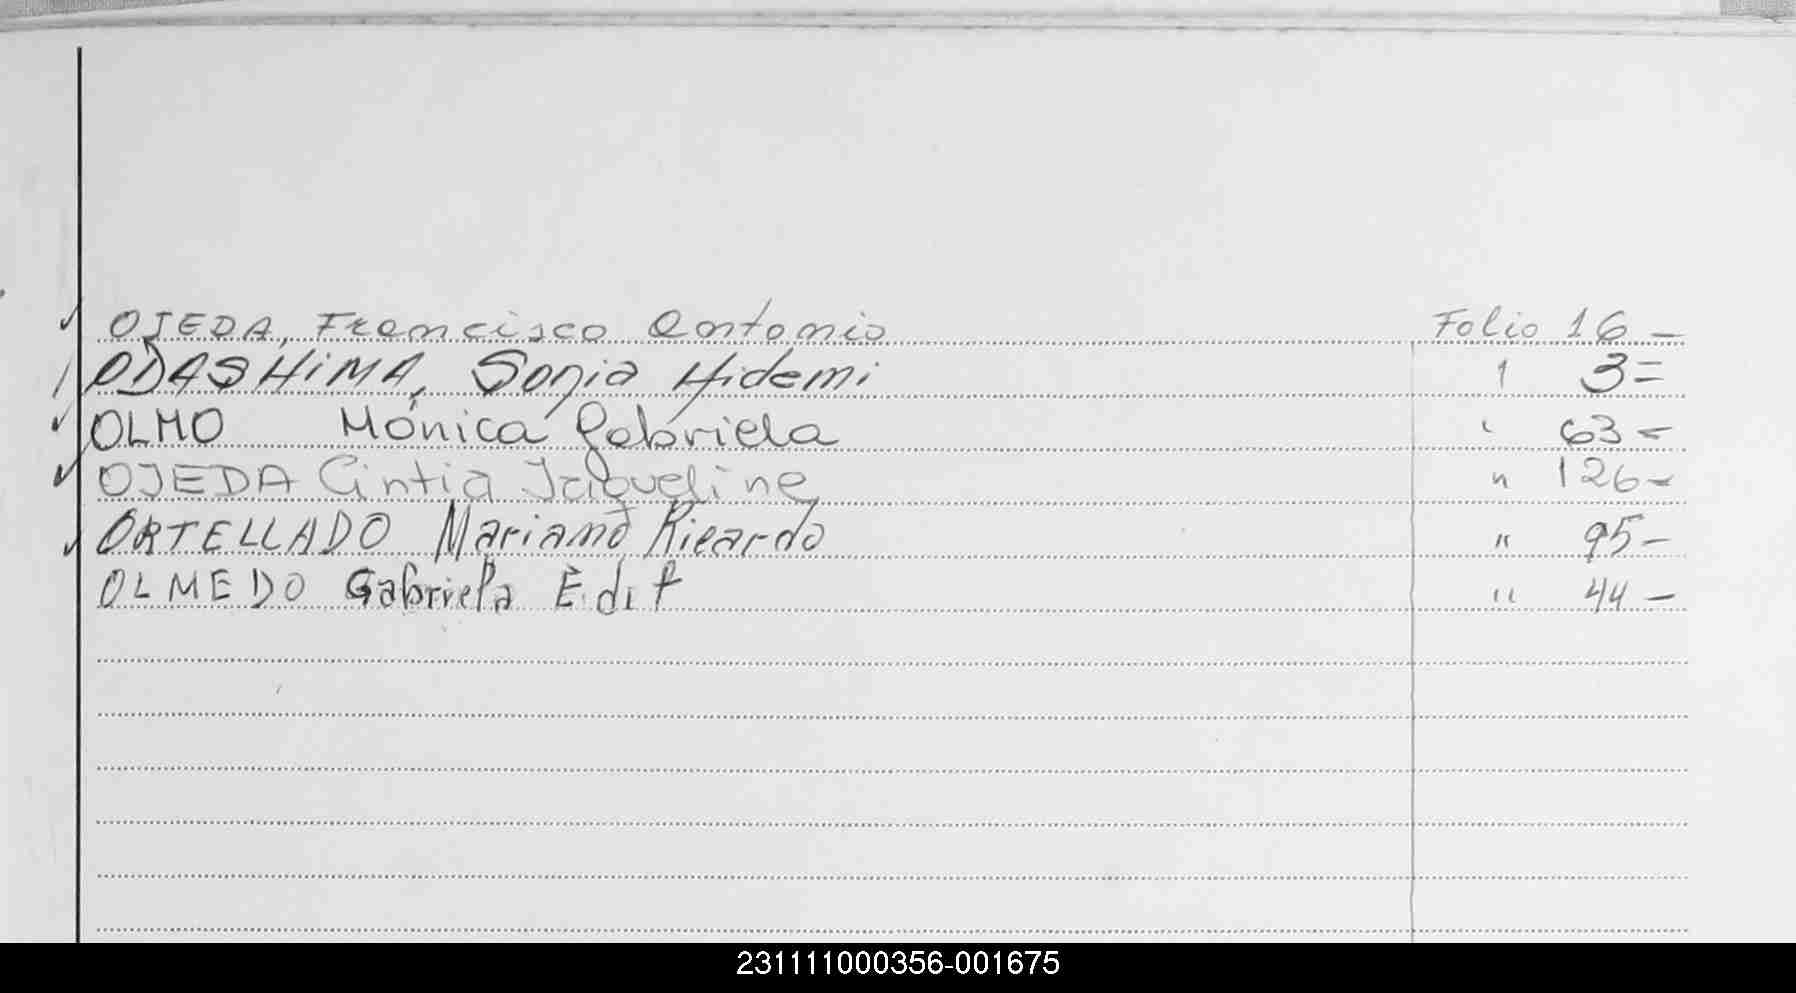 ✓ OJEDA, Francisco Antonio Folio 16 -
/ ODASHIMA, Sonia Hidemi " 3=
✓ OLMO Mónica Gabriela " 63 =
✓ OJEDA Cintia Jaqueline " 126 -
✓ ORTELLADO Mariano Ricardo " 95 -
OLMEDO Gabriela Edit " 44 -
231111000356-001675